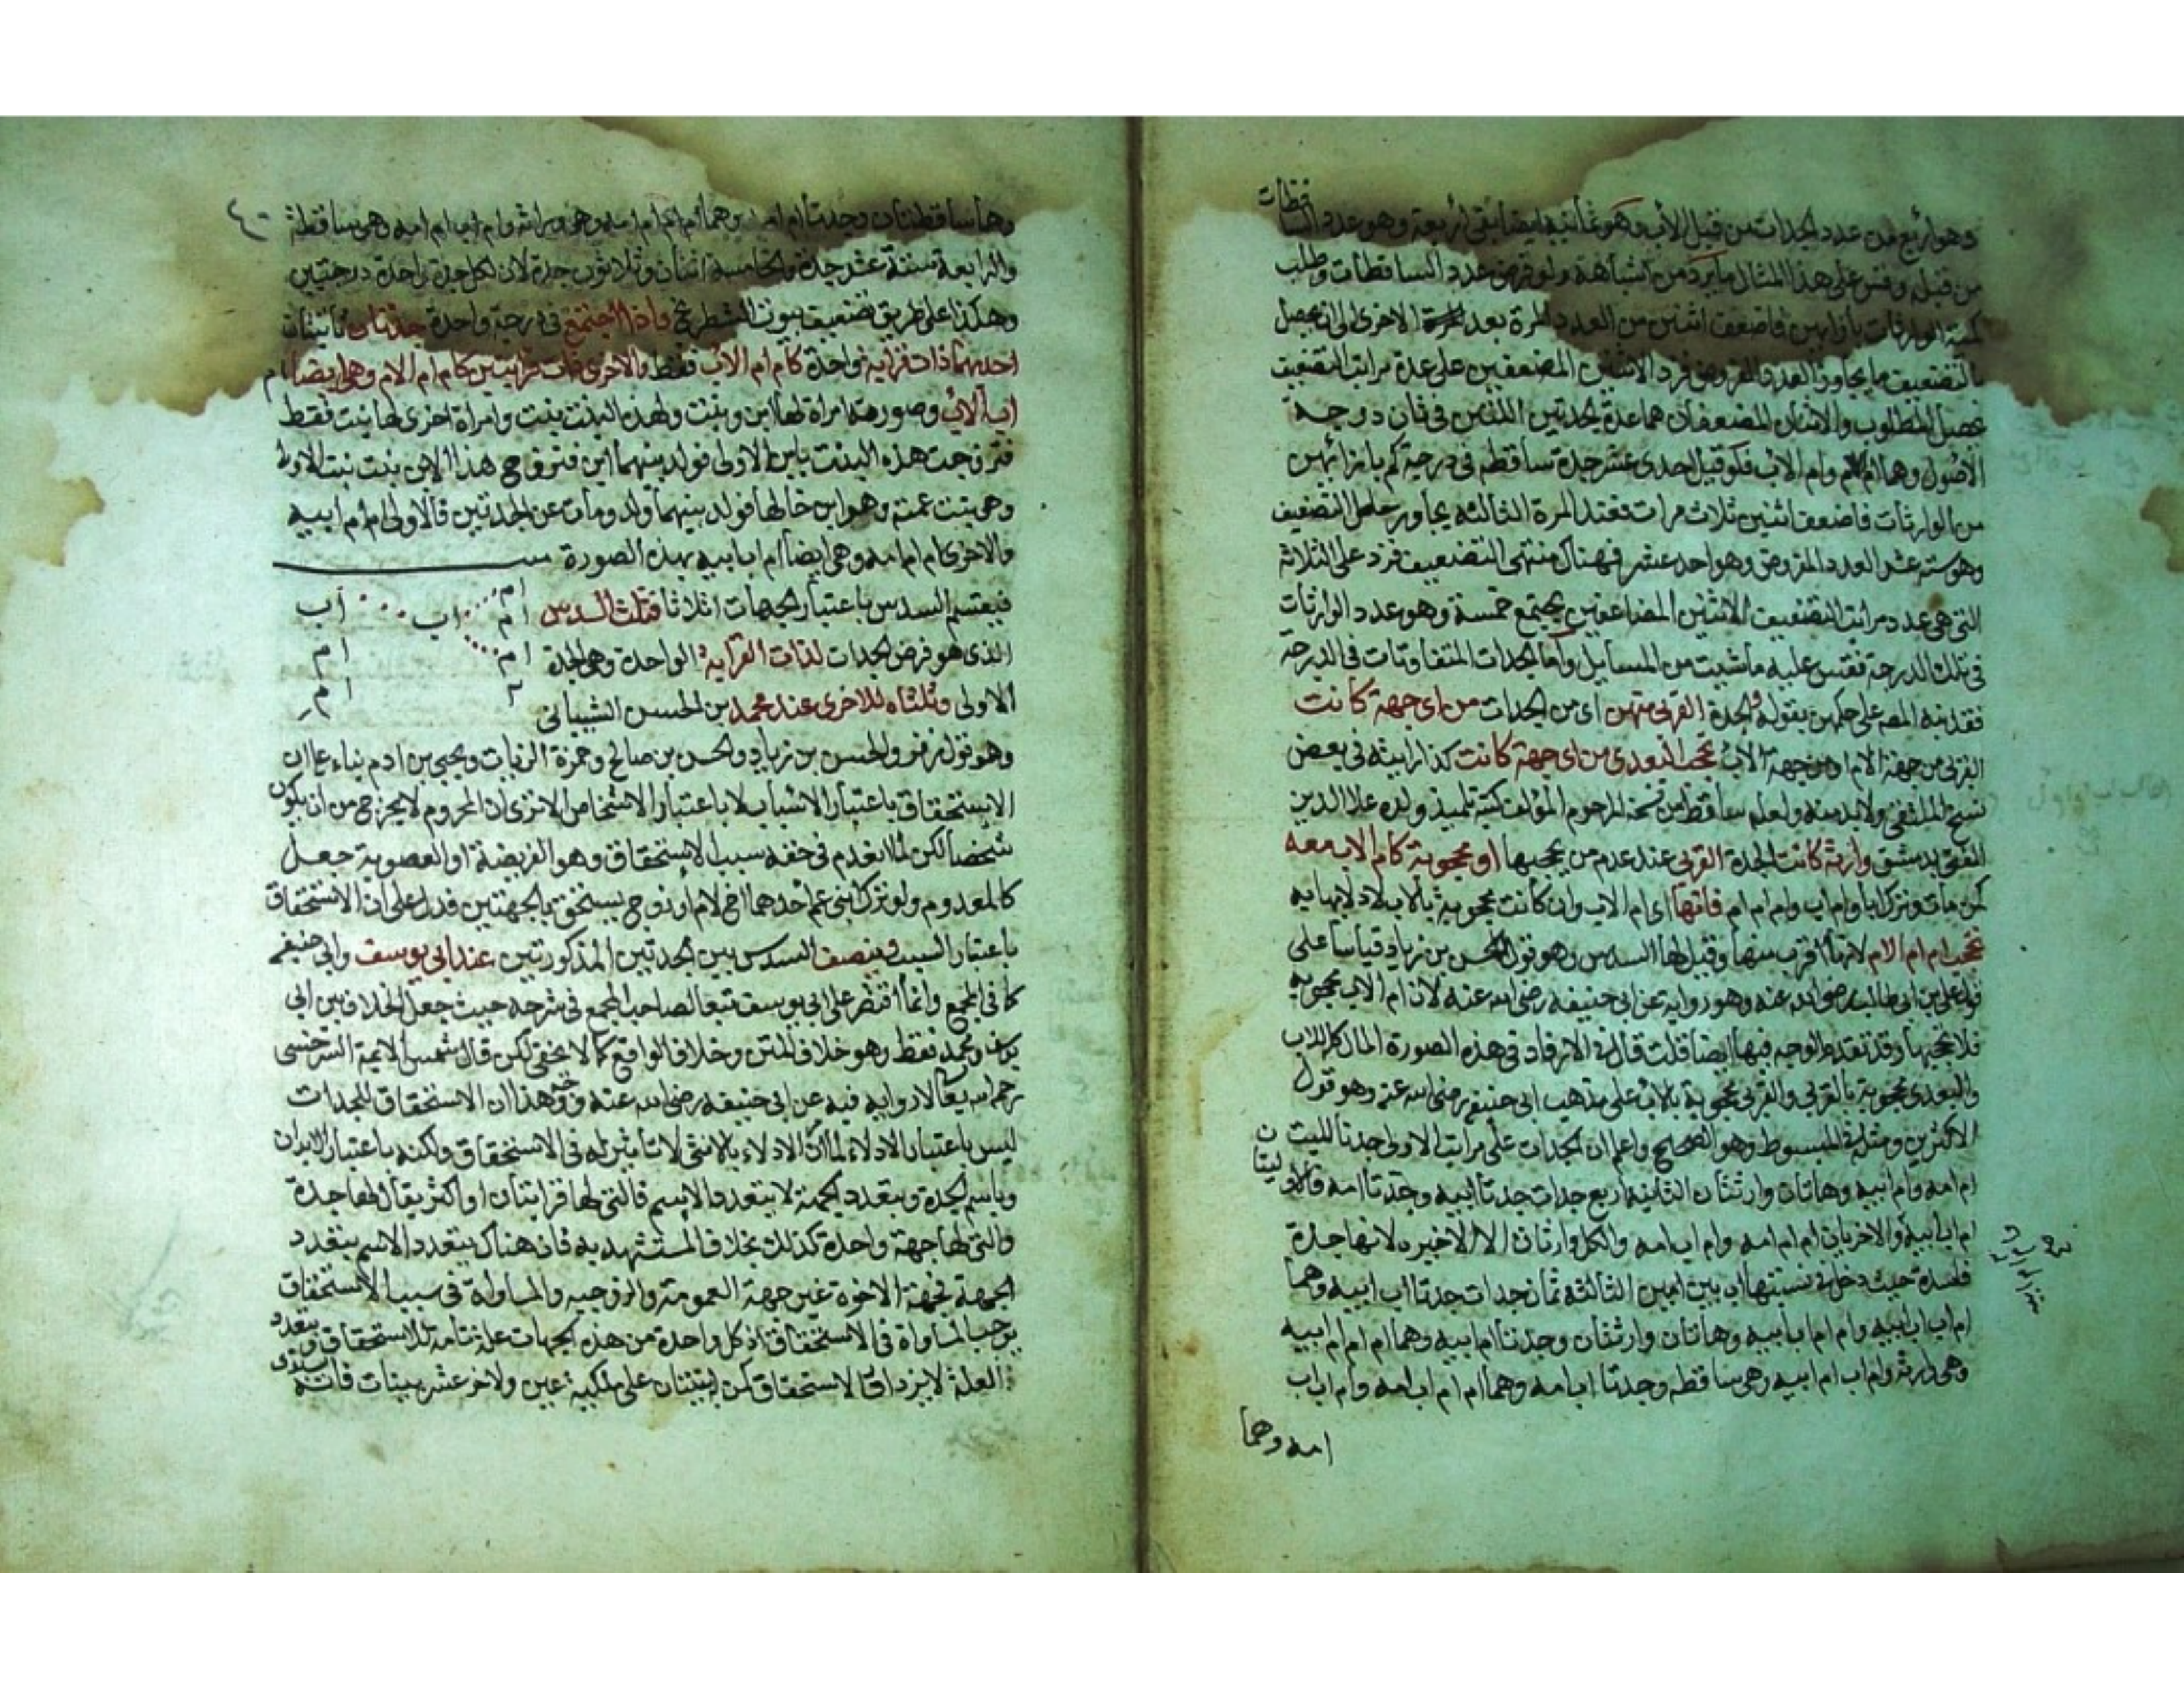 وهو اربع من عدد الجدات من قبل الاب وهو ثمانية ايضا بقى اربعة وهو عدد الساقطات
من قبله وقس على هذا المثال ما يرد من اشباهه ولو فرض عدد الساقطات وطلب
كمية الوارثات بازائهن فاضعف اثنين من العدد المرة بعد المرة الاخرى الى ان يحصل
بالتضعيف ما يجاوز العدد المفروض فزد الاثنين المضعفين على عدة مراتب التضعيف
يحصل المطلوب والاثنان المضعفان هما عدة الجدتين اللتين في ثان درجة
الاصول وهما ام الام وام الاب فلو قيل احدى عشر جدة ساقطة في درجة كم بازائهن
من الوارثات فاضعف اثنين ثلاث مرات فعند المرة الثالثة يجاوز حاصل التضعيف
وهو ستة عشر العدد المفروض وهو احد عشر فهناك منتهى التضعيف فزد على الثلاثة
التي هي عدد مراتب التضعيف الاثنين المضاعفين يجتمع خمسة وهو عدد الوارثات
في تلك الدرجة فقس عليه ما شيت من المسايل واما الجدات المتفاوتات في الدرجة
فقد نبه المص على حكمهن بقوله والجدة القربى منهن اى من الجدات من اى جهة كانت
القربى من جهة الام او من جهة الاب تحجب البعدى من اى جهة كانت كذا رايته في بعض
نسخ الملتقى ولا بد منه ولعله ساقط من نسخة المرحوم المؤلف كتبه تلميذ ولده علا الدين
المفتى بدمشق وارثة كانت الجدة القربى عند عدم من يحجبها او محجوبة كام الاب معه
كمن مات وترك ابا وام اب وام ام ام فانها اى ام الاب وان كانت محجوبة بالاب لادلائها به
تحجب ام ام الام لانها اقرب منها وقيل لها السدس وهو قول الحسن بن زياد قياسا على
قول على بن ابى طالب رضى الله عنه وهو رواية عن ابى حنيفه رضى الله عنه لان ام الاب محجوبة
فلا تحجبها وقد تقدم الوجه فيها ايضا قلت قال في الارفاد في هذه الصورة المال كله للاب
والبعدى محجوبة بالقربى والقربى محجوبة بالاب على مذهب ابى حنيفة رضى الله عنه وهو قول
الاكثرين ومثله في المبسوط وهو الصحيح واعلم ان الجدات على مراتب الاولى جدتا للميت
ام امه وام ابيه وهاتان وارثتان الثانية اربع جدات جدتا ابيه وجدتا امه فالاوليتان
ام اب ابيه والاخريان ام ام امه وام اب امه والكل وارثات الا الاخيره لانها جدة
فاسدة حيث دخل في نسبتها اب بين امين الثالثة ثمان جدات جدتا اب ابيه وهما
ام اب اب ابيه وام ام اب ابيه وهاتان وارثتان وجدتا ام ابيه وهما ام ام ام ابيه
وهي وارثة وام اب ام ابيه وهي ساقطه وجدتا اب امه وهما ام ام اب امه وام اب اب
امه وهما
٤٠
وهما ساقطتان وجدتا ام امه وهما ام ام ام امه وهي وراثة وام اب ام امه وهي ساقطة
والرابعة ستة عشر جدة والخامسة اثنان وثلاثون جدة لان لكل جدة واحدة درجتين
وهكذا على طريق تضعيف بيوت الشطرنج واذا اجتمع في درجة واحدة جدتان ثابتتان
احديهما ذات قرابة واحدة كام ام الاب فقط والاخرى ذات قرابتين كام ام الام وهي ايضا ام
اب الاب وصورته امراة لها ابن وبنت ولهذه البنت بنت وامراة اخرى لها بنت فقط
فتزوجت هذه البنت بابن الاولى فولد بينهما ابن فتزوج هذا الابن بنت بنت الاولى
وهي بنت عمته وهو ابن خالها فولد بينهما ولد ومات عن الجدتين فالاولى ام ام ابيه
والاخرى ام ام امه وهي ايضا ام اب ابيه بهذه الصورة
فيقسم السدس باعتبار الجهات اثلاثا فثلث السدس
الذى هو فرض الجدات لذات القرابة الواحدة وهي الجدة
الاولى وثلثاه للاخرى عند محمد بن الحسن الشيبانى
ام
ام اب اب
ام ام
ام
وهو قول زفر والحسن بن زياد والحسن بن صالح وحمزة الزيات ويحيى بن ادم بناء على ان
الاستحقاق باعتبار الاسباب لا باعتبار الاشخاص الا ترى ان المحروم لا يخرج من ان يكون
شخصا لكن لما انعدم في حقه سبب الاستحقاق وهو الفريضة او العصوبة جعل
كالمعدوم ولو ترك ابنى عم احدهما اخ لام او زوج يستحق بالجهتين فدل على ان الاستحقاق
باعتبار السبب وينصف السدس بين الجدتين المذكورتين عند ابى يوسف وابى حنيفه
كما في المجمع وانما اقتصر على ابى يوسف تبعا لصاحب المجمع في شرحه حيث جعل الخلاف بين ابى
يوسف ومحمد فقط وهو خلاف المتن وخلاف الواقع كما لا يخفى لكن قال شمس الايمة السرخسى
رحمه الله تعالى لا رواية فيه عن ابى حنيفه رضى الله عنه ووجه هذا ان الاستحقاق للجدات
ليس باعتبار الادلاء لما ان الادلاء بالانثى لا تاثير له في الاستحقاق ولكنه باعتبار
وباسم الجدة وبتعدد الجهة لا يتعدد الاسم فالتى لها قرابتان او اكثر يقال لها جدة
والتى لها جهة واحدة كذلك بخلاف المستشهد به فان هناك يتعدد الاسم بتعدد
الجهة فجهة الاخوة غير جهة العمومة والزوجيه والمساواة في سبب الاستحقاق
يوجب المساواة في الاستحقاق اذ كل واحدة من هذه الجهات علة تامة للاستحقاق وبتعدد
العلة لا يزداد الاستحقاق كمن بينتان على ملكية عين ولاخر عشر بينات فانه يستوى